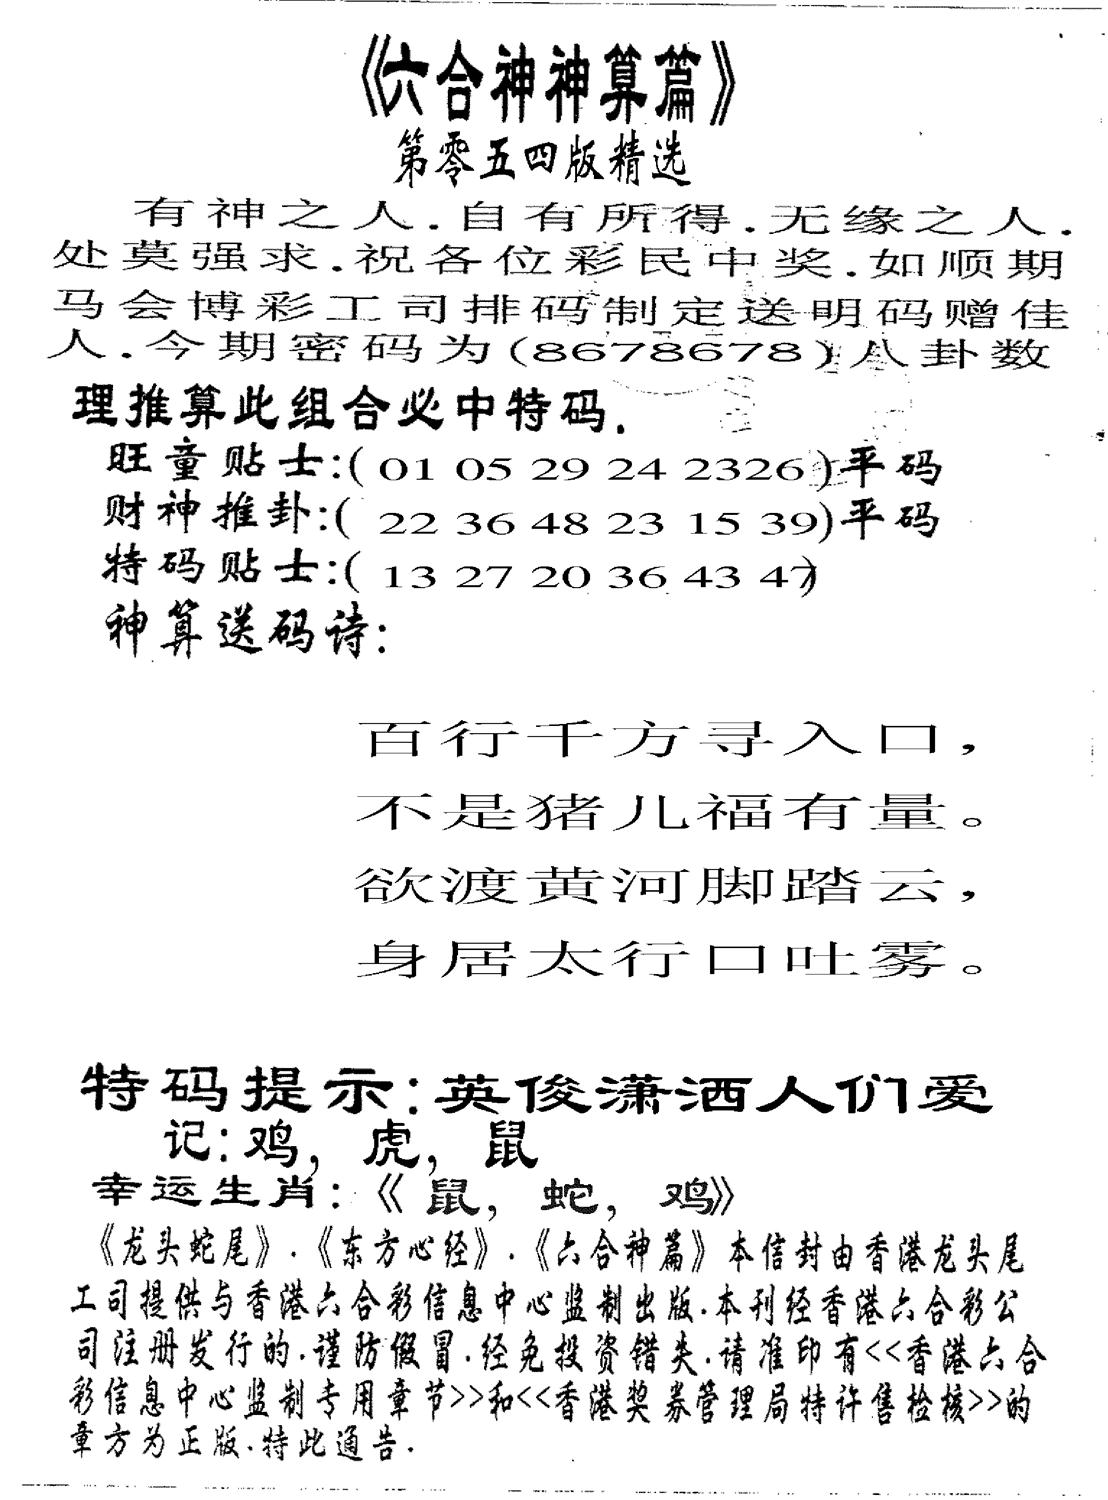 《六合神神算篇》
第零五四版精选
有神之人.自有所得.无缘之人.
处莫强求.祝各位彩民中奖.如顺期
马会博彩工司排码制定送明码赠佳
人.今期密码为(8678678)八卦数
理推算此组合必中特码.
旺童贴士:( 01 05 29 24 2326 )平码
财神推卦:( 22 36 48 23 15 39)平码
特码贴士:( 13 27 20 36 43 47)
神算送码诗:
百行千方寻入口,
不是猪儿福有量。
欲渡黄河脚踏云,
身居太行口吐雾。
特码提示:英俊潇洒人们爱
记:鸡,虎,鼠
幸运生肖:《鼠,蛇,鸡》
《龙头蛇尾》.《东方心经》.《六合神篇》本信封由香港龙头尾
工司提供与香港六合彩信息中心监制出版.本刊经香港六合彩公
司注册发行的.谨防假冒.经免投资错失.请准印有<<香港六合
彩信息中心监制专用章节>>和<<香港奖券管理局特许售检核>>的
章方为正版.特此通告.